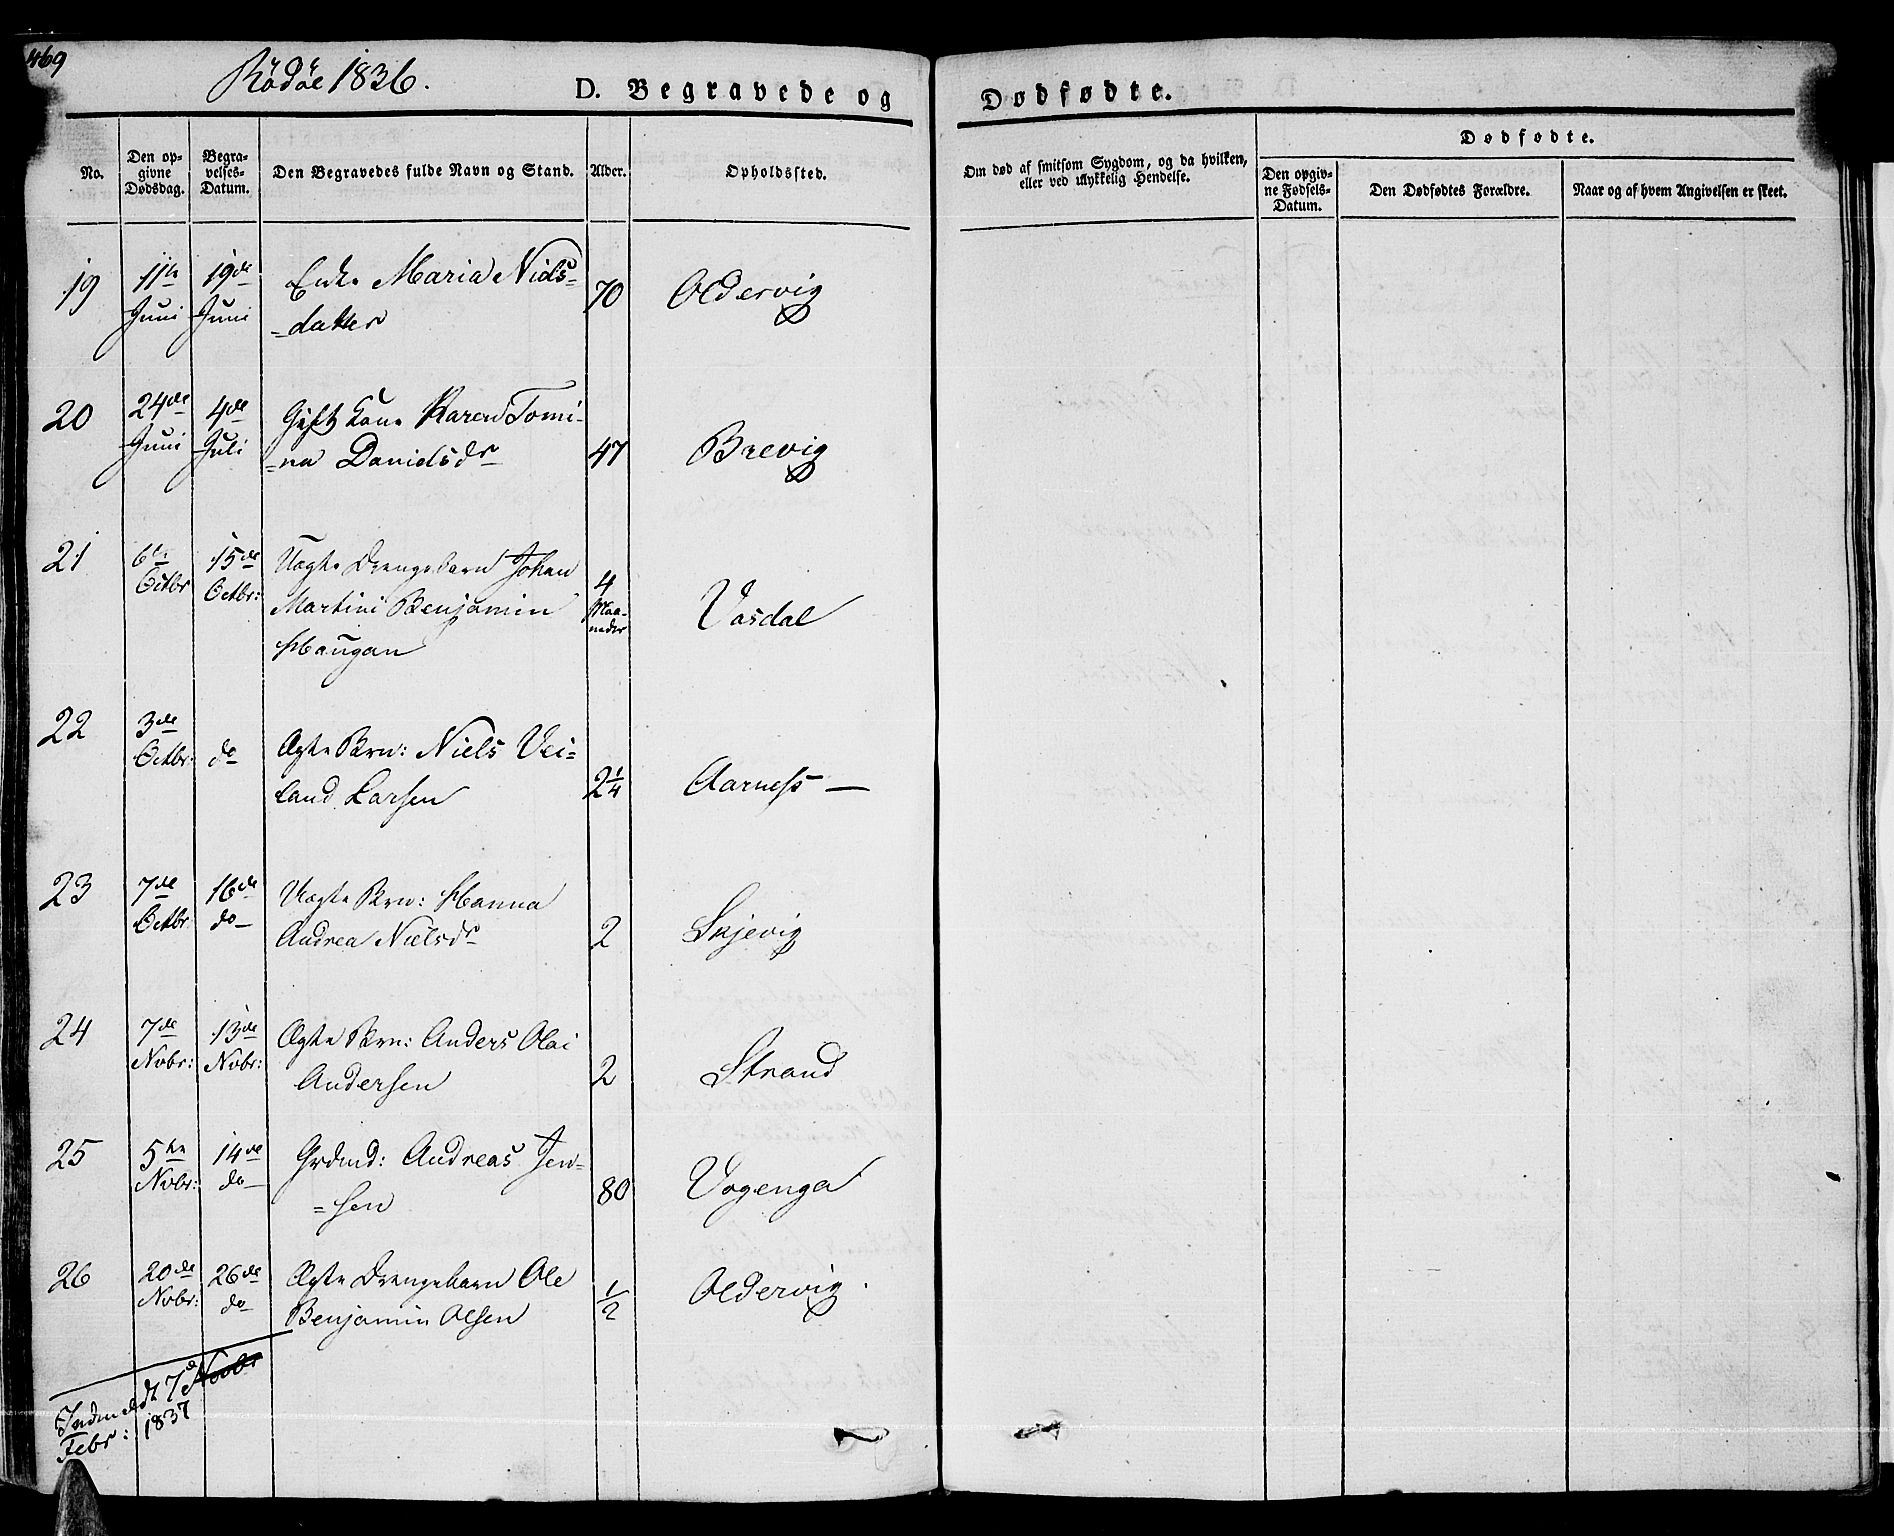 469
Rödöe 1836.
D. Begravede og
Dødfødte.
No.
Den opgivne Dødsdag.
Begravelses-Datum.
Den Begravedes fulde Navn og Stand.
Alder.
Opholdssted.
Om død af smitsom Sygdom, og da hvilken, eller ved ulykkelig Hendelse.
Dødfødte.
Den opgivne Fødsels-Datum.
Den Dødfødtes Forældre.
Naar og af hvem Angivelsen er skeet.
19 11te 19de Enke Maria Niels= 70 Oldervig
Juni Juni =datter
20 24de 4de Gift Kone Karen Tomi-
Juni Juli =na Danielsdr 47 Brevig
21 6te 15de Uægte Drengebarn Johan 4
Octbr Octbr: Martini Benjamin Maaneder Vasdal
Haugan
22 3de
Octbr: do Ægte Brn: Niels Vei=
land Larsen 2 1/4 Aarness —
23 7de 16de Uægte Brn: Hanna
Octbr do Andrea Nielsdr 2 Skjevig
24 7de 13de Ægte Brn: Anders Olai
Nobr: Nobr: Andersen 2 Strand
25 5te 14de Grdmd: Andreas Jen=
Nobr: do =sen 80 Vogenga
26 20de 26de Ægte Drengebarn Ole
Nobr: do Benjamin Olsen 1/2 Oldervig.
Indmeldt 7de Novbr
Febr: 1837